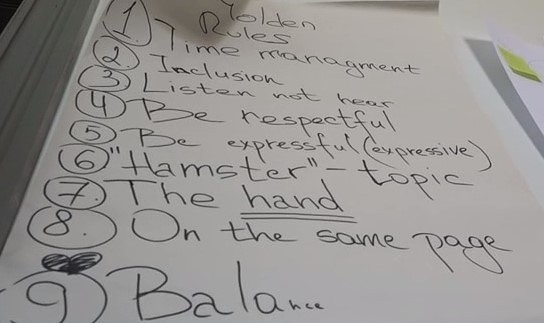 Golden
Rules
1. Time managment
2 Inclusion
3 Listen not hear
4 Be respectful
5 Be expressful (expressive)
6 "Hamster" - topic
7. The hand
8. On the same page
9) Balance